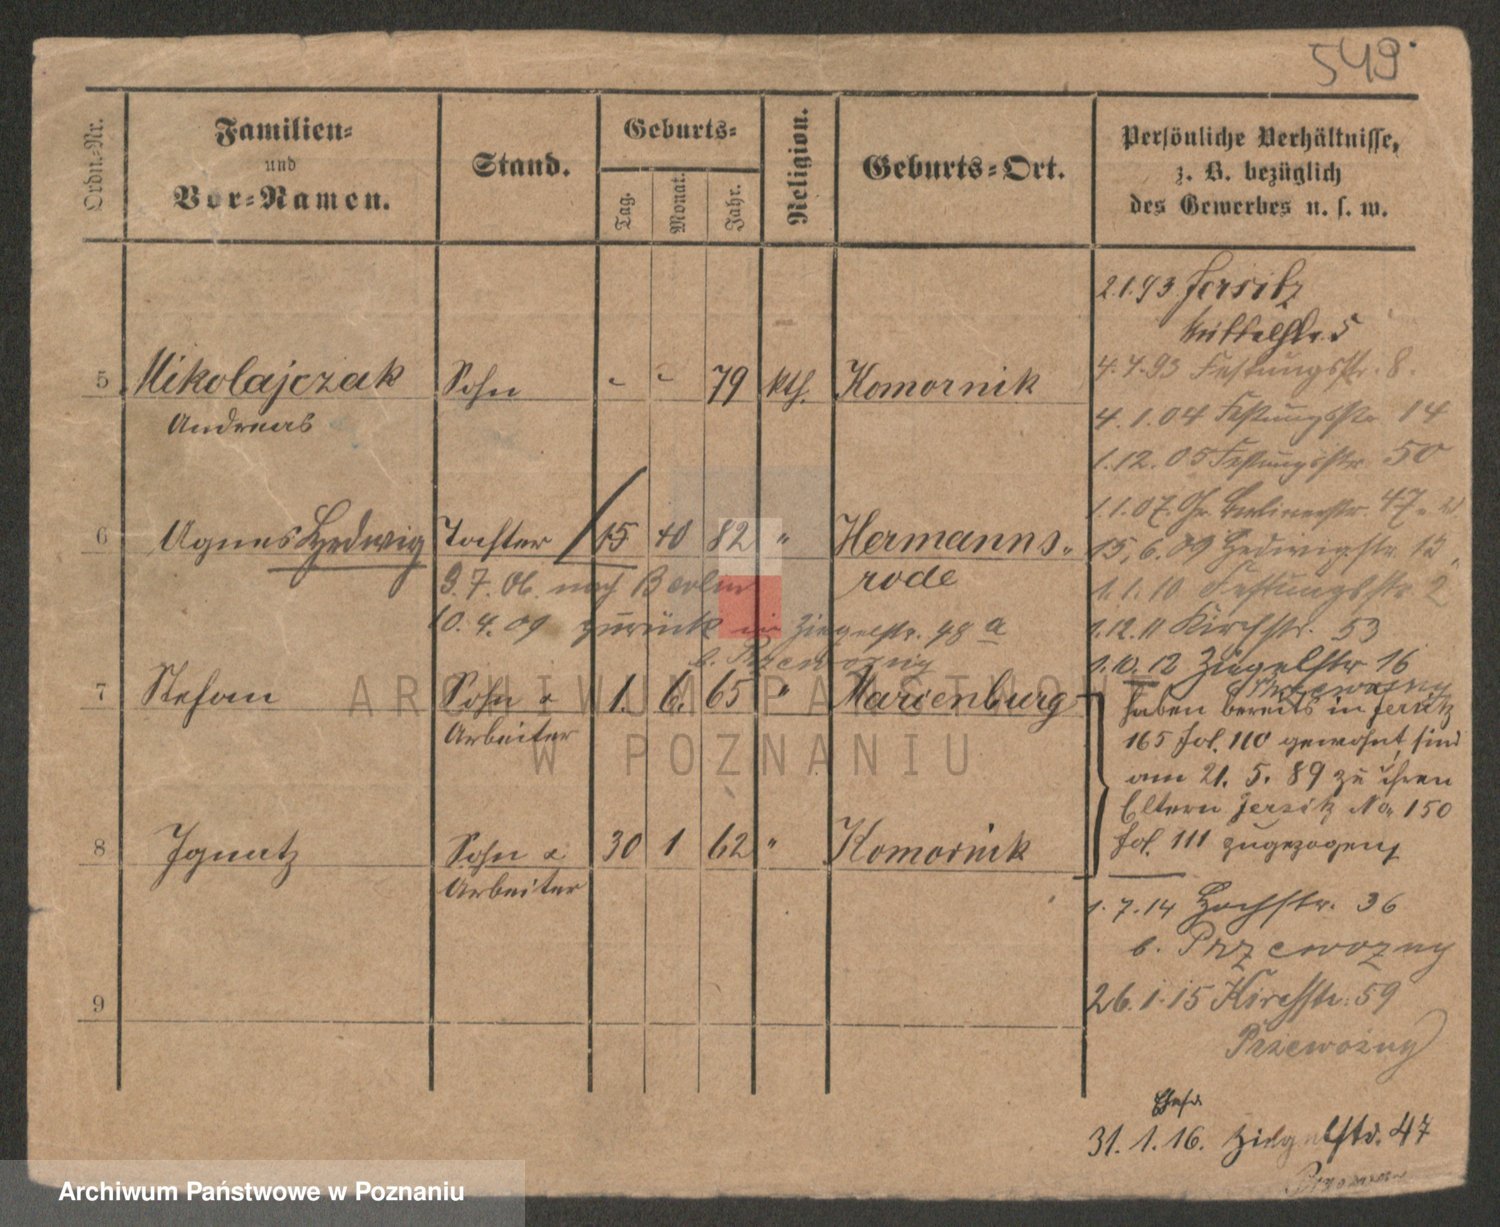 549
Ordn.-Nr.
Familien-
und
Vor-Namen.
Stand.
Geburts-
Tag.
Monat.
Jahr.
Religion.
Geburts-Ort.
Persönliche Verhältnisse,
z. B. bezüglich
des Gewerbes u. s. w.
2.1.93 Jersitz
5
4.7.93 Festungsstr. 8.
5 Mikolajczak Sohn 79 kth. Komornik
Andreas
4.1.04 Festungsstr 14
1.12.05 Festungsstr 50
1.1.07. Gr. Berlinerstr. 47
6 Agnes Hedwig Tochter 15 10 82 " Hermanns-
rode
15.6.09 Hedwigstr. 12
9.7.06. nach Berlin
1.1.10 Festungsstr 2
10.4.09 zurück in Ziegelstr. 48 a
b. Przewozny
1.12.11 Kirchstr. 53
1.10.12 Ziegelstr 16
Przewozny
7 Stefan Sohn &
Arbeiter 1. 6. 65 " Marienburg
haben bereits in Jersitz
165 fol. 110 gewohnt, sind
am 21. 5. 89 zu ihren
Eltern Jersitz No. 150
fol. 111 zugezogen
8 Ignatz Sohn &
Arbeiter 30 1 62 " Komornik
1.7.14 Hochstr. 36
b. Przewozny
26.1.15 Kirchstr. 59
Przewozny
9
31.1.16. Ziegelstr. 47
ARCHIWUM PAŃSTWOWE
W POZNANIU
Archiwum Państwowe w Poznaniu